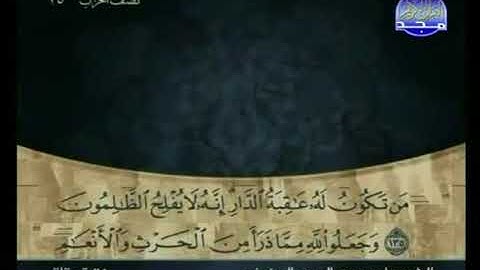 نصف الحزب ١٥
المجد
مَن تَكُونُ لَهُۥ عَٰقِبَةُ ٱلدَّارِ إِنَّهُۥ لَا يُفْلِحُ ٱلظَّٰلِمُونَ
١٣٥ وَجَعَلُوا۟ لِلَّهِ مِمَّا ذَرَأَ مِنَ ٱلْحَرْثِ وَٱلْأَنْعَٰمِ